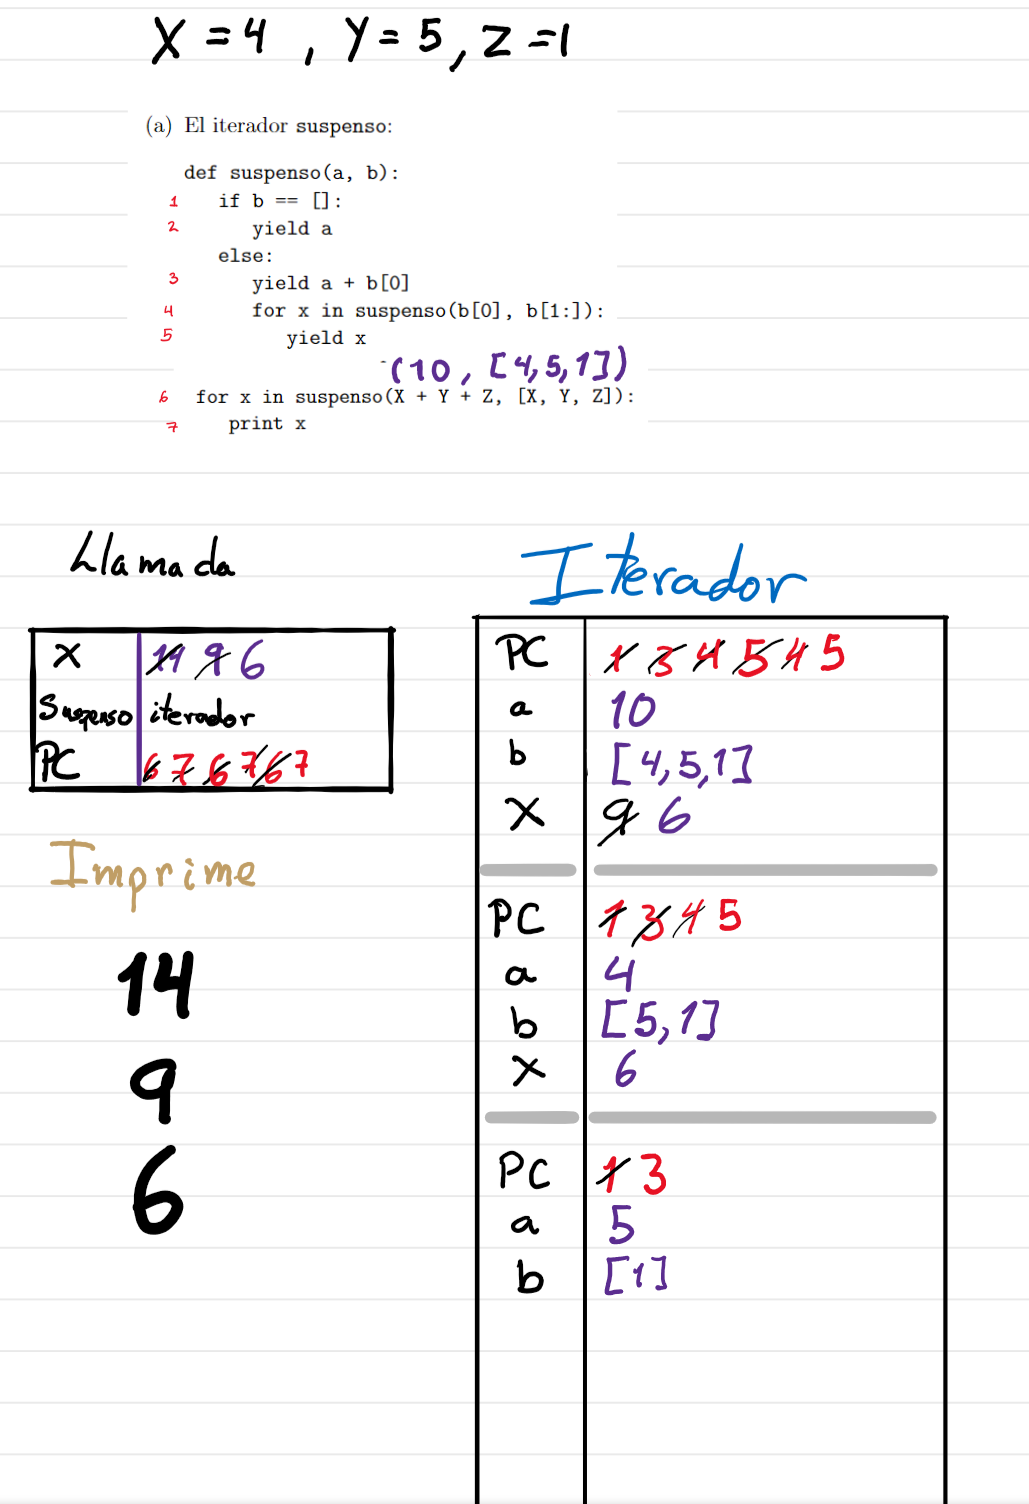 X = 4 , Y = 5 , Z = 1
(a) El iterador suspenso:
def suspenso(a, b):
1 if b == []:
2 yield a
else:
3 yield a + b[0]
4 for x in suspenso(b[0], b[1:]):
5 yield x
(10, [4,5,1])
6 for x in suspenso(X + Y + Z, [X, Y, Z]):
7 print x
Llamada
X 14 9 6
Suspenso iterador
PC 6 7 6 7 6 7
Imprime
14
9
6
Iterador
PC 1 3 4 5 4 5
a 10
b [4,5,1]
X 9 6
PC 1 3 4 5
a 4
b [5,1]
X 6
PC 1 3
a 5
b [1]